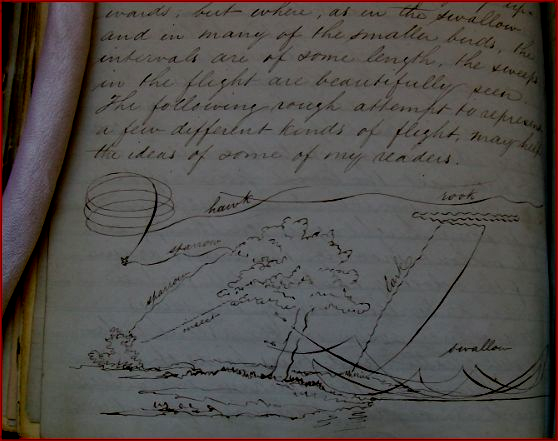 wards; but where, as in the swallow
and in many of the smaller birds, the
intervals are of some length, the sweeps
in the flight are beautifully seen.
The following rough attempt to represent
a few different kinds of flight, may help
the ideas of some of my readers.
hawk
rook
sparrow
sparrow
lark
swallow